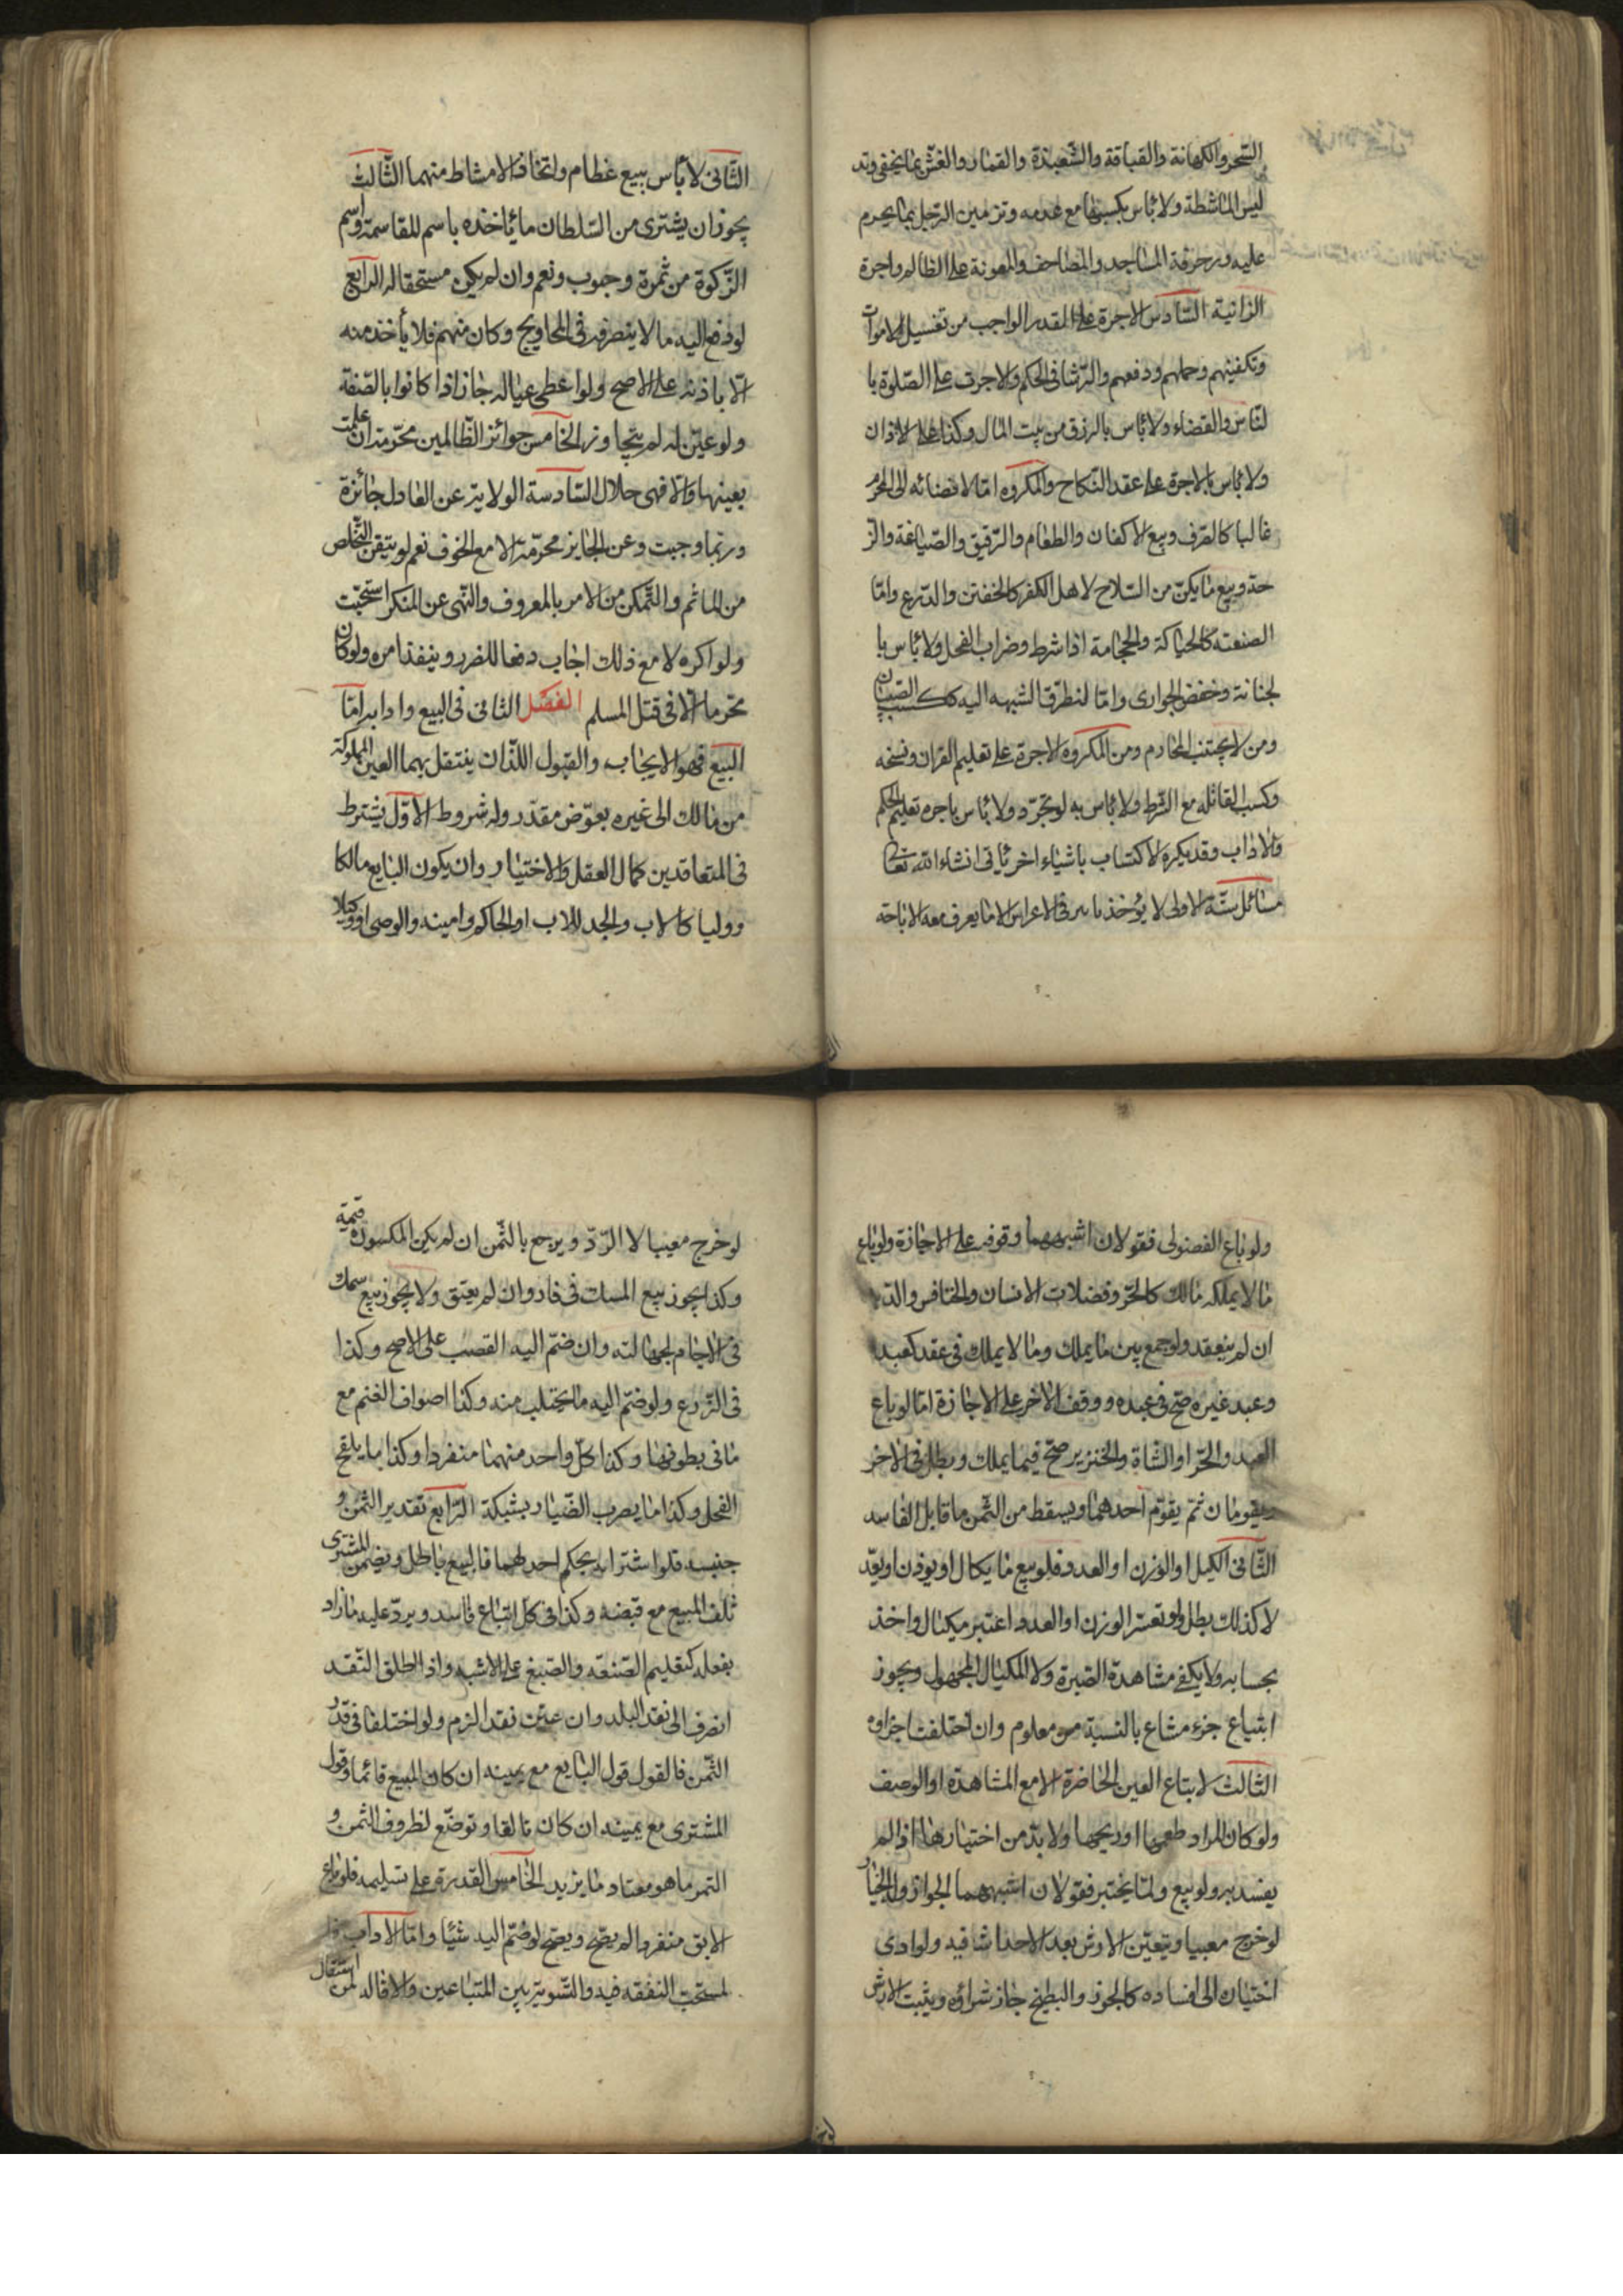 السّحر والكهانة والقيافة والشّعبذة والقمار والغشّ بما يخفى وتد
ليس الماشطة ولا بأس بكسبها مع عدمه وتزيين الرّجل بما يحرم
عليه وزخرفة المساجد والمصاحف والمعونة على الظالم واجرة
الزانية السّادس الاجرة على القدر الواجب من تغسيل الاموات
وتكفينهم وحملهم ودفعهم والرّشا فى الحكم والاجرت على الصّلوة با
لنّاس والقضاء ولا بأس بالرزق من بيت المال وكذا على الاذان
ولا بأس بالاجرة على عقد النكاح والمكروه امّا لافضائه الى المحرّم
غالبا كالصّرف وبيع الاكفان والطعام والرّقيق والصّياغة والز
حة وبيع ما يكنّ من السّلاح لاهل الكفر كالخفتن والدّرع وامّا
الصنعته كالحياكة والحجامة اذا شرط وضراب الفحل ولا بأس با
لختانة وخفض الجوارى وامّا لتطرّق الشبهه اليه ككسب الصّبيان
ومن لا يجتنب المحارم ومن المكروه الاجرة على تعليم القران ونسخه
وكسب القائله مع الشّرط ولا بأس به لو تجرّد ولا بأس باجره تعليم الحكم
والاداب وقد يكره الاكتساب باشياء اخر ياتى انشاء الله تعالى
مسائل ستّة الاولى لا يؤخذ ما ىىر فى الاعراس الا ما يعرف معه الاباحة
الثّانى لا بأس ببيع عظام واتخاذ الامشاط منهما الثّالث
يجوز ان يشترى من السّلطان ما ياخذه باسم للقاسمة واسم
الزّكوة من ثمرة وحبوب ونعم وان لم يكن مستحقا له الرّابع
لو دفع اليه ما لا يتصرفه فى المحاويج وكان منهم فلا يأخذ منه
الّا باذنه على الاصح ولو اعطى عياله جاز اذا كانوا بالصّفة
ولو عيّن له لم يتجاوز الخامس جوائز الظّالمين محرّمة ان علمت
بعينها والّا فهى حلال السّادسة الولاية عن العادل جائزة
وربما وجبت وعن الجاير محرّمة الا مع الخوف نعم لو تيقن التّخلص
من الماثم والتّمكن من الامر بالمعروف والنّهى عن المنكر استحبّت
ولو اكره لا مع ذلك اجاب دفعا للضرر وينفذ امره ولو كان
محرّما الّا فى قتل المسلم الفصل الثانى فى البيع وادابه امّا
البيع فهو الايجاب والقبول اللّذان ينتقل بهما العين المملوكة
من مالك الى غيره بعوّض مقدّر وله شروط الاوّل يشترط
فى المتعاقدين كمال العقل والاختيار وان يكون البايع مالكا
ووليا كالاب والجد للاب او الحاكم وامينه والوصى او وكيلا
ولو باع الفضولى فقولان اشبههما وقوفه على الاجازة ولو باع
ما لا يملكه مالك كالحرّ وفضلات الانسان والخنافس والدّيد
ان لم ينعقد ولو جمع بين ما يملك وما لا يملك فى عقد كعبد
وعبد غيره صحّ فى عبده ووقف الاخر على الاجازة امّا لو باع
العبد والحّر او الشاة والخنزير صحّ فيما يملك وبطل فى الاخر
ويقومان ثمّ يقوّم احدهما ويسقط من الثّمن ما قابل الفاسد
الثّانى الكيل او الوزن او العدد فلو بيع ما يكال او يوزن او يعّد
لا كذلك بطل ولو تعسّر الوزن او العدد اعتبر مكيال واخذ
بحسابه ولا يكفى مشاهدة الصّبرة ولا المكيال المجهول ويجوز
ابتياع جزء مشاع بالنسبة من معلوم وان اختلفت اجزاوه
الثّالث لا يبتاع العين الحاضرة الا مع المشاهدة او الوصف
ولو كان المراد طعمها او ريحها ولا بدّ من اختيارها اذا لم
يفسد به ولو بيع ولمّا يختبر فقولان اشبههما الجواز والخيار
لو خرج معيبا ويتعيّن الارش بعد الاحداث فيه ولو ادى
اختياره الى افساده كالجوز والبطيخ جاز شراؤه ويثبت الارش
لو خرج معيبا لا الرّدّ ويرجع بالثّمن ان لم يكن المكسوره قيمة
وكذا يجوز بيع المسك فى فاره وان لم يفتق ولا يجوز بيع سمك
فى الاجام لجهالته وان ضمّ اليه القصب على الاصح وكذا
فى الزّرع ولو ضمّ اليه ما يحتلب منه وكذا اصواف الغنم مع
ما فى بطونها وكذا كلّ واحد منهما منفردا وكذا ما يلقح
الفحل وكذا ما يضرب الصّياد بشبكة الرّابع تقدير الثّمن و
جنسه فلو اشتراه بحكم احدلهما فالبيع باطل ويضمن المشترى
تلف المبيع مع قبضه وكذا فى كلّ ابتياع فاسد ويردّ عليه ما زاد
بفعله كتعليم الصّنعه والصّبغ على الاشبه واذ الطلق النّقد
انصرف الى نقد البلد وان عيّن نقد الزم ولو اختلفا فى قدر
الثّمن فالقول قول البايع مع يمينه ان كان المبيع قائما وقول
المشترى مع يمينه ان كان تالفا وتوضّع لظروف الثمن و
التمر ما هو معتاد ما يزيد الخامس القدرة على تسليمه فلو باع
الابق منفردا لم يصّح ويصّح لو ضمّ اليه شيئا وامّا الاداب
لمستحبّ النفقه فيه والتّسوية بين المتبّاعين والاقاله لمن استقال